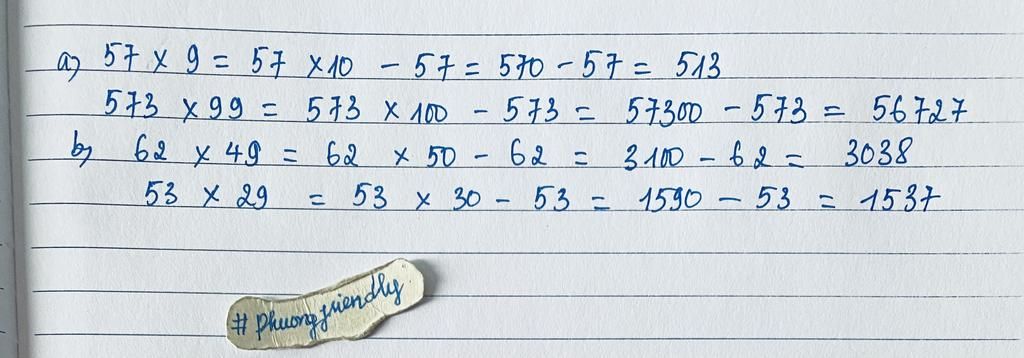 a) 57 × 9 = 57 × 10 - 57 = 570 - 57 = 513
573 × 99 = 573 × 100 - 573 = 57300 - 573 = 56727
b) 62 × 49 = 62 × 50 - 62 = 3100 - 62 = 3038
53 × 29 = 53 × 30 - 53 = 1590 - 53 = 1537
# phuongfriendly